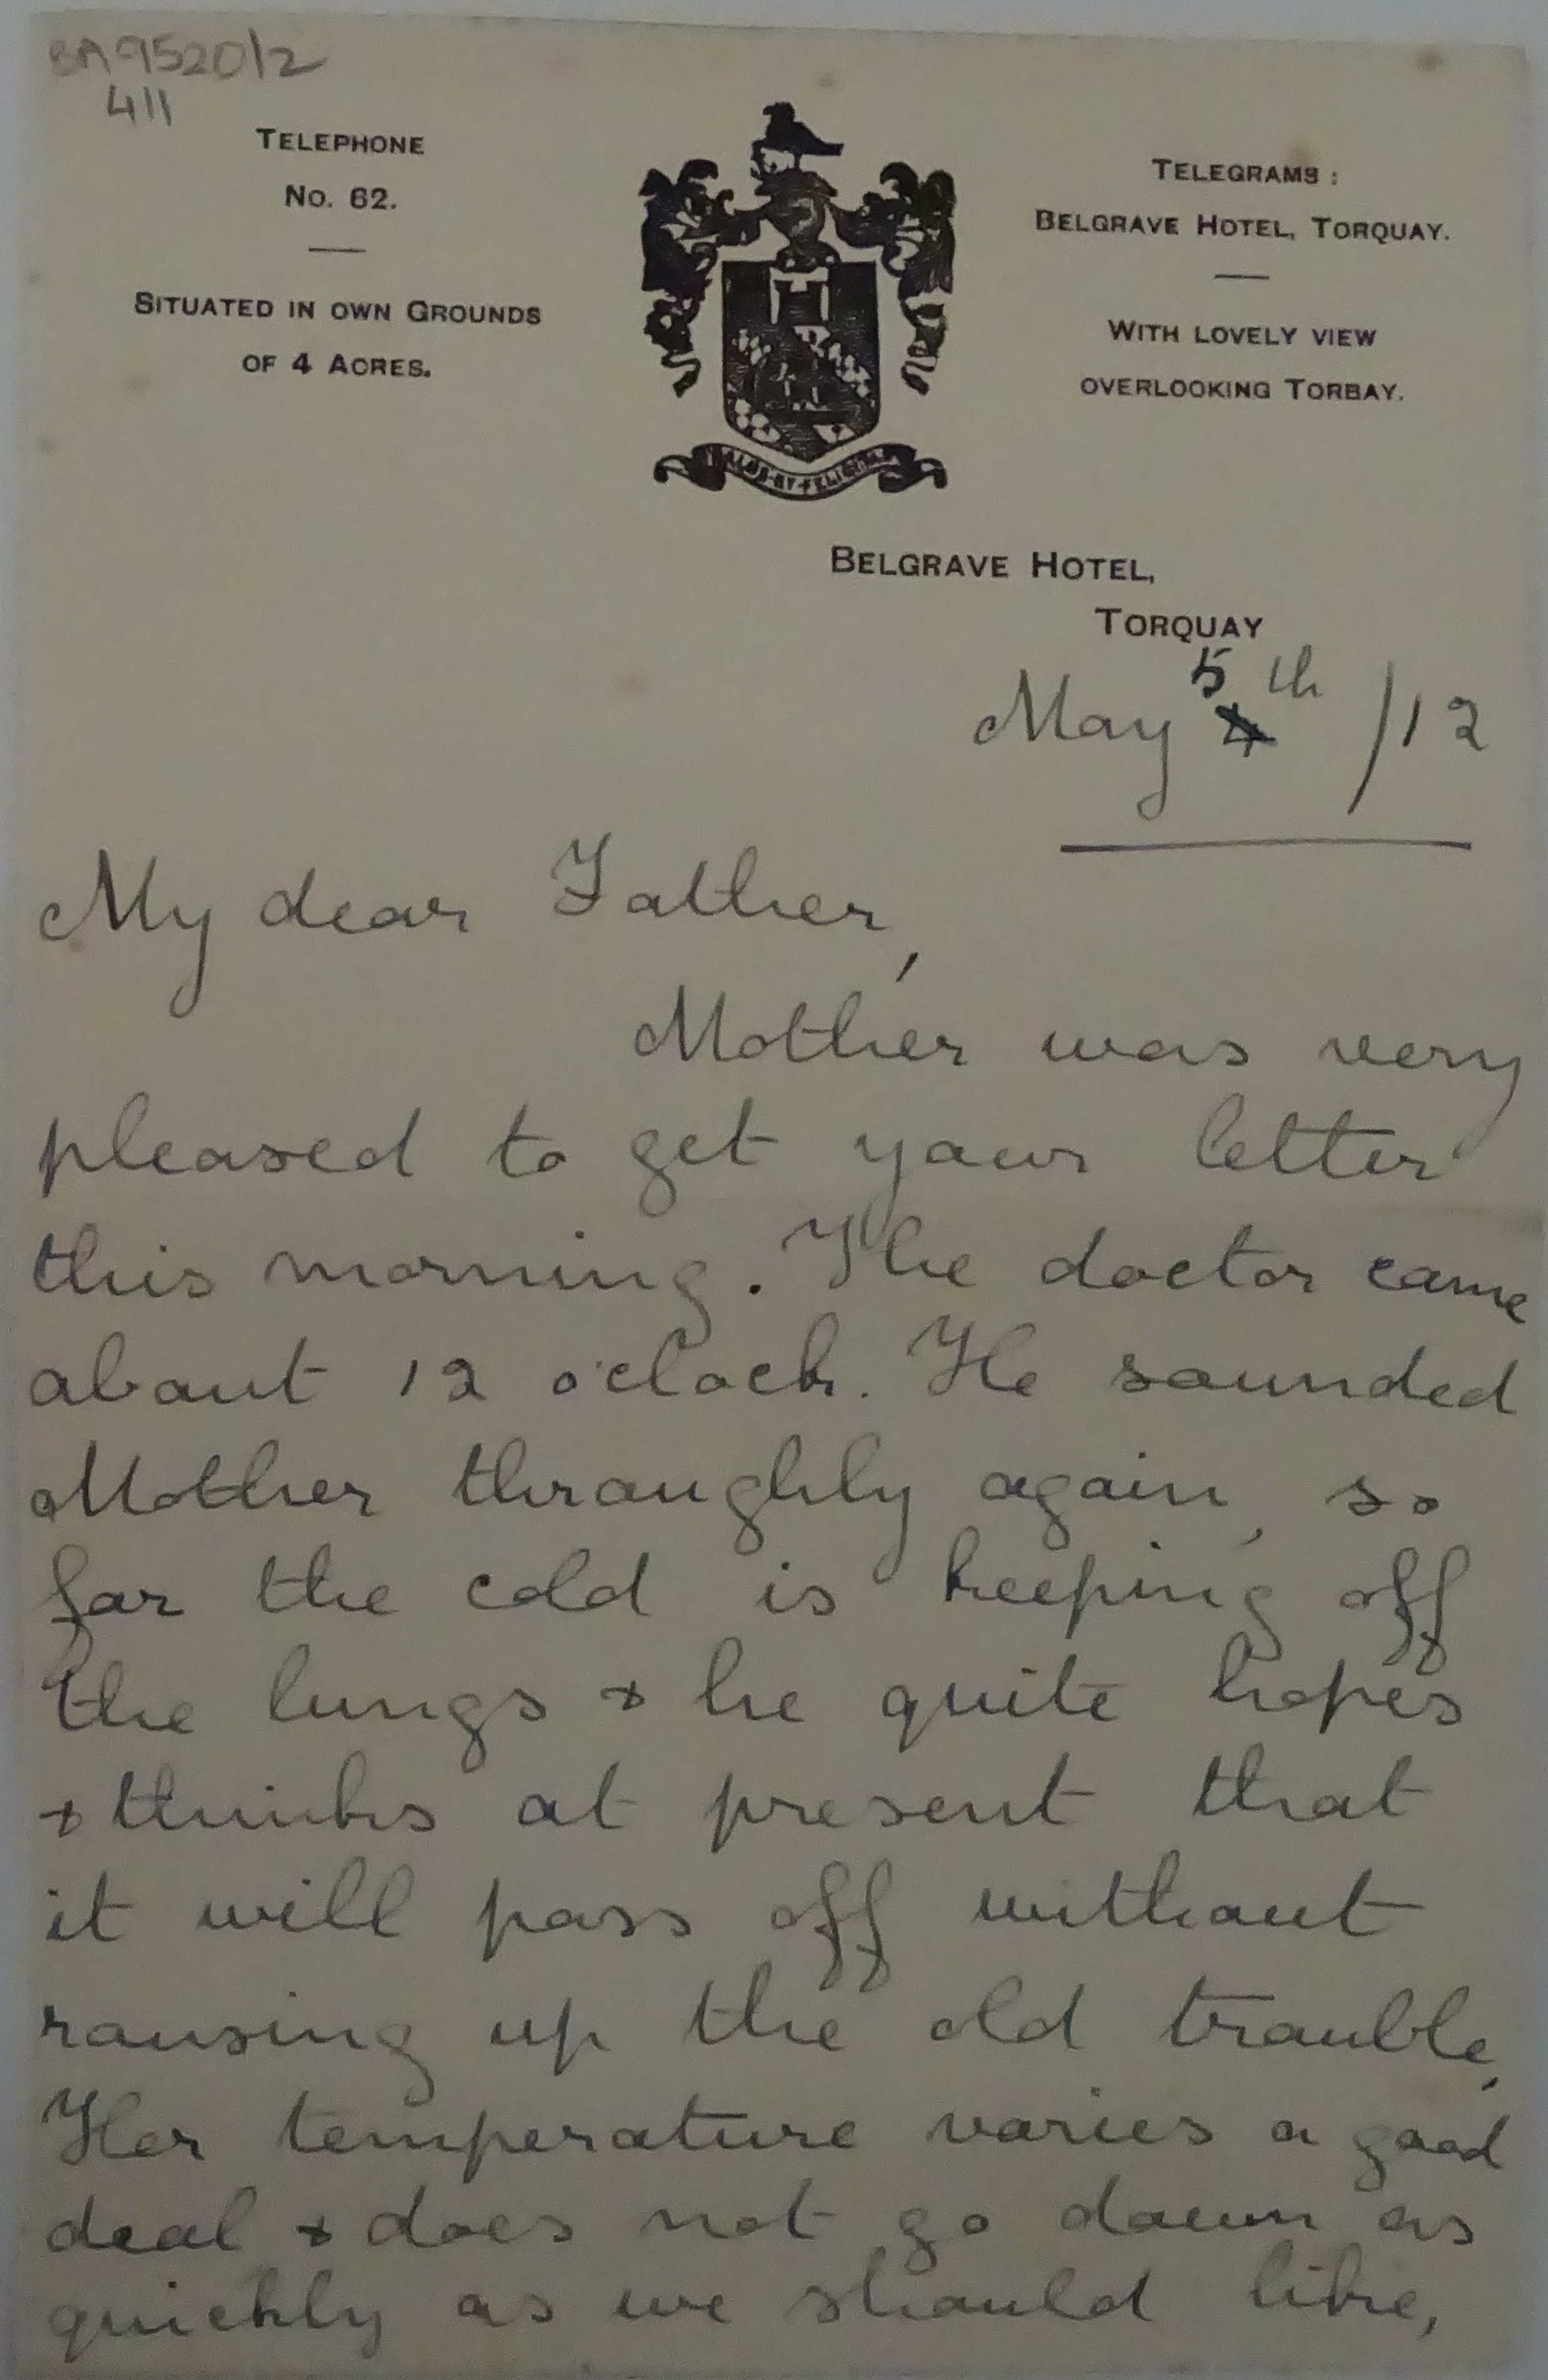 BA9520/2
411
TELEPHONE
No. 62.
SITUATED IN OWN GROUNDS
OF 4 ACRES.
TELEGRAMS:
BELGRAVE HOTEL, TORQUAY.
WITH LOVELY VIEW
OVERLOOKING TORBAY.
BELGRAVE HOTEL,
TORQUAY
May 5th /12
My dear Father,
Mother was very
pleased to get your letter
this morning. The doctor came
about 12 o'clock. He sounded
Mother throughly again, so
far the cold is keeping off
the lungs & he quite hopes
& thinks at present that
it will pass off without
rousing up the old trouble,
Her temperature varies a good
deal & does not go down as
quickly as we should like,